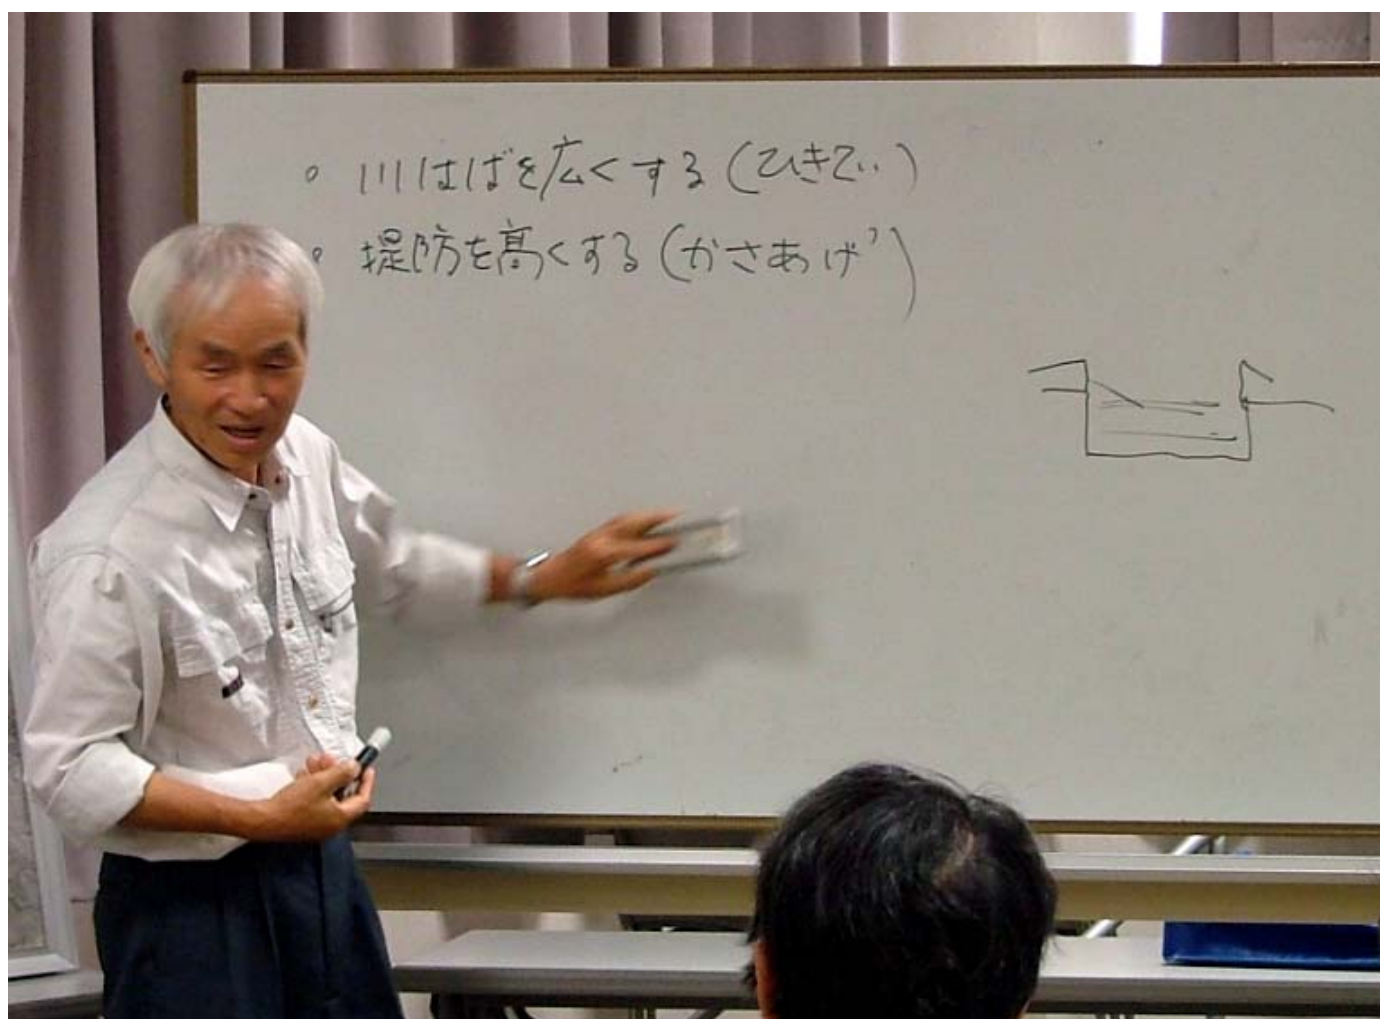 ○ 川はばを広くする(ひきてい)
○ 堤防を高くする(かさあげ)